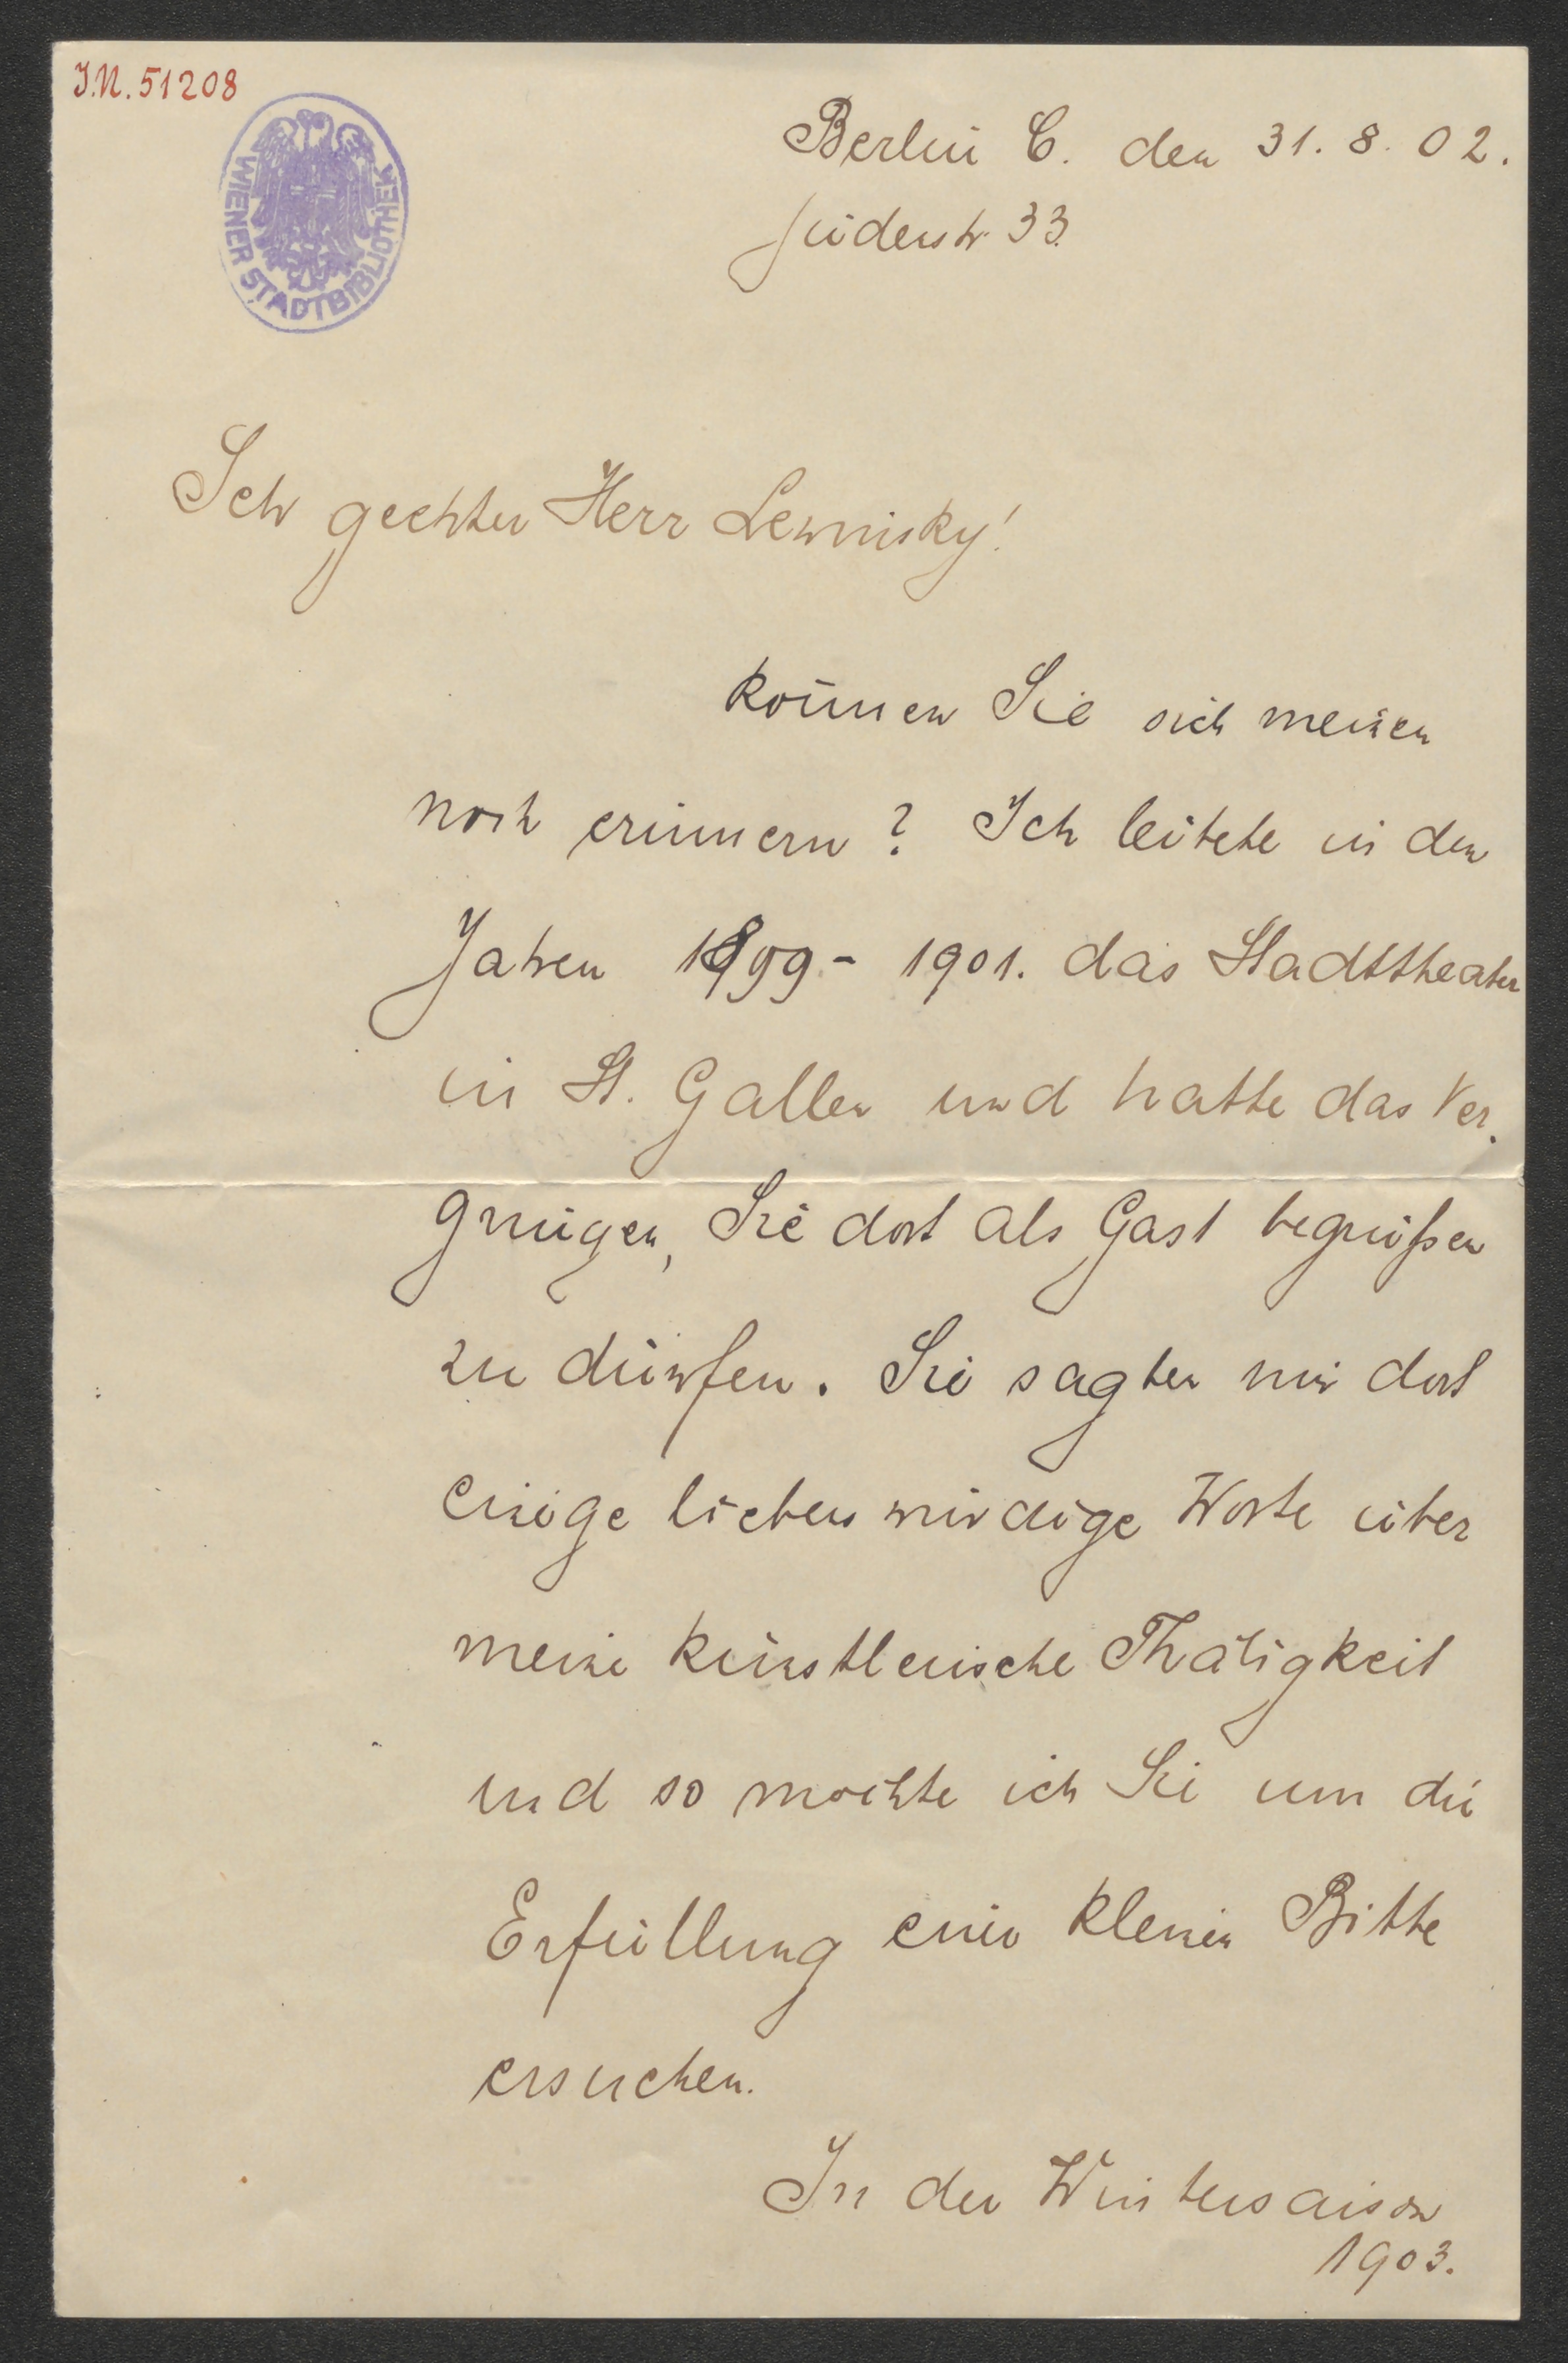 J.N. 51208
WIENER STADTBIBLIOTHEK
Berlin C. den 31. 8. 02.
Jüdenstr. 33.
Sehr geehrter Herr Lewinsky!
können Sie sich meinen
noch erinnern? Ich leitete in den
Jahren 1899 - 1901. das Stadttheater
in St. Gallen und hatte das Ver-
gnügen, Sie dort als Gast begrüßen
zu dürfen. Sie sagten mir dort
einige liebenswürdige Worte über
meine künstlerische Thätigkeit
und so möchte ich Sie um die
Erfüllung einer kleinen Bitte
ersuchen.
In der Wintersaison
1903.